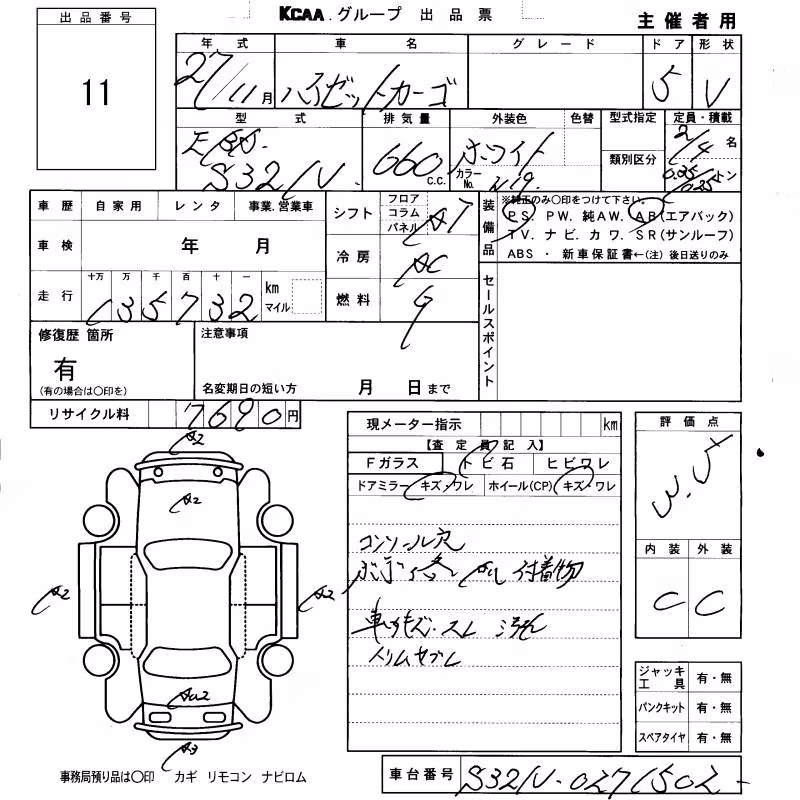 KCAA.グループ 出品票
主催者用
出品番号
11
年式 車名 グレード ドア 形状
27/11月 ハイゼットカーゴ 5 V
型式 排気量 外装色 色替 型式指定 定員・積載
EBD. 660 C.C. ホワイト カラーNo. W19 類別区分 2/4名
S321V. 0.35/0.25トン
車歴 自家用 レンタ 事業.営業車
シフト フロア コラム パネル AT
装備品 ※純正のみ〇印をつけて下さい。
PS. PW. 純AW. AB(エアバック)
TV. ナビ. カワ. SR(サンルーフ)
ABS ・ 新車保証書←(注) 後日送りのみ
車検 年 月
冷房 AC
走行 十万 万 千 百 十 一 km マイル
135732
燃料 G
セールスポイント
修復歴 箇所 注意事項
有
(有の場合は〇印を) 名変期日の短い方 月 日まで
リサイクル料 7690円
現メーター指示 km
【査定員記入】
Fガラス トビ石 ヒビワレ
ドアミラー キズ・ワレ ホイール(CP) キズ・ワレ
コンソール穴
付着物
スレ 汚れ
評価点
内装 外装
C C
A2
A2
A2 A2
A3
ジャッキ工具 有・無
パンクキット 有・無
スペアタイヤ 有・無
事務局預り品は〇印 カギ リモコン ナビロム
車台番号 S321V-0271502